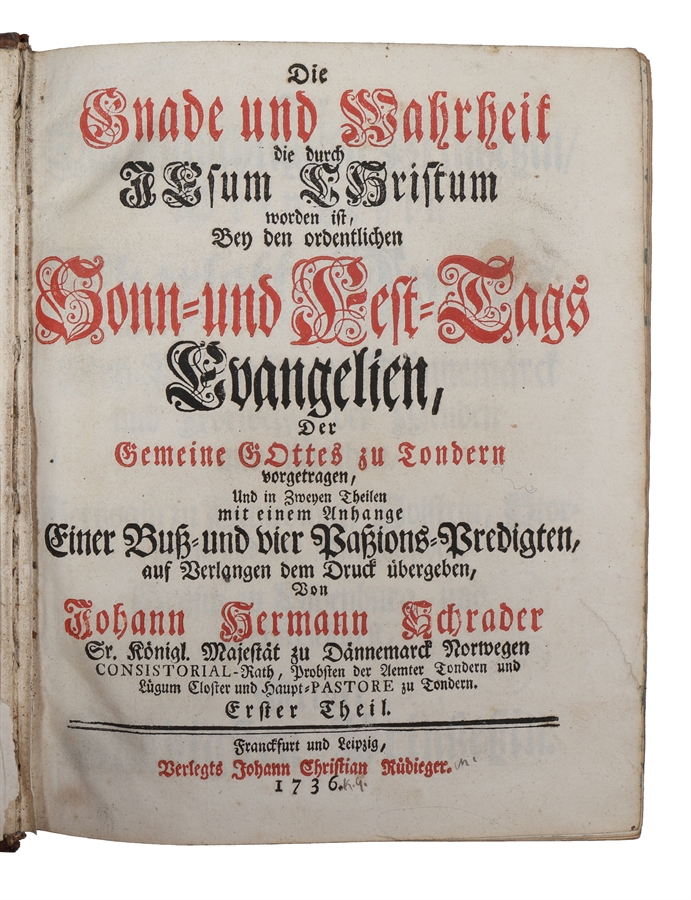 Die
Gnade und Wahrheit
die durch
JEsum CHristum
worden ist,
Bey den ordentlichen
Sonn- und Fest-Tags
Evangelien,
Der
Gemeine GOttes zu Tondern
vorgetragen,
Und in Zweyen Theilen
mit einem Anhange
Einer Buß- und vier Paßions-Predigten,
auf Verlangen dem Druck übergeben,
Von
Johann Hermann Schrader
Sr. Königl. Majestät zu Dännemarck Norwegen
CONSISTORIAL-Rath, Probsten der Aemter Tondern und
Lügum Closter und Haupt-PASTORE zu Tondern.
Erster Theil.
Franckfurt und Leipzig,
Verlegts Johann Christian Rüdieger.
1736.